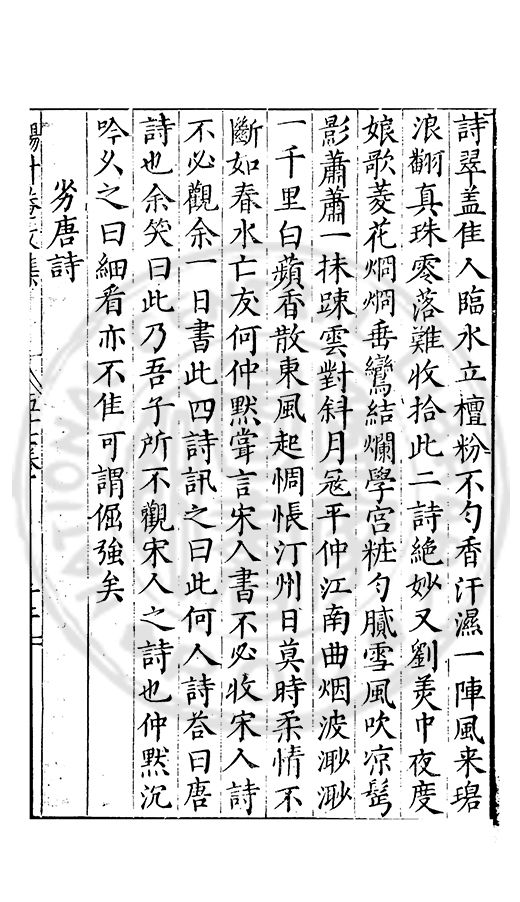 詩翠盖佳人臨水立檀粉不勻香汗濕一陣風来碧
浪翻真珠零落難收拾此二詩絶妙又劉美中夜度
娘歌菱花烱烱垂鸞結爛學宫粧勻膩雪風吹凉鬂
影蕭蕭一抹踈雲對斜月冦平仲江南曲烟波渺渺
一千里白蘋香散東風起惆悵汀州日莫時柔情不
斷如春水亡友何仲默嘗言宋人書不必收宋人詩
不必觀余一日書此四詩訊之曰此何人詩荅曰唐
詩也余笑曰此乃吾子所不觀宋人之詩也仲默沉
吟久之曰細看亦不佳可謂倔強矣
劣唐詩